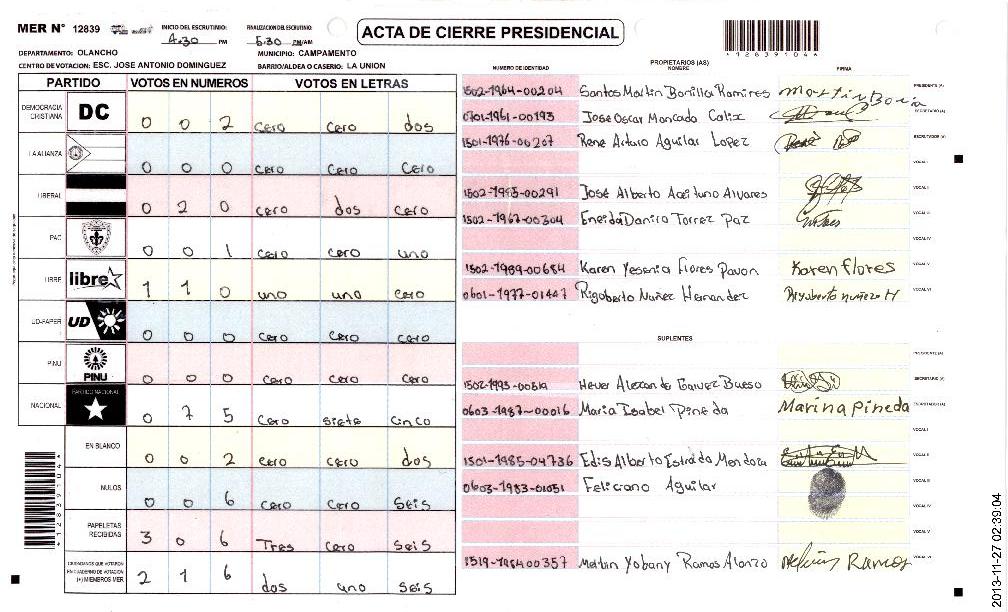 MER N° 12839
INICIO DEL ESCRUTINIO: 4:30 PM
FINALIZACION DEL ESCRUTINIO: 5:30 PM/AM
ACTA DE CIERRE PRESIDENCIAL
*12839104*
DEPARTAMENTO: OLANCHO
MUNICIPIO: CAMPAMENTO
CENTRO DE VOTACION: ESC. JOSE ANTONIO DOMINGUEZ
BARRIO/ALDEA O CASERIO: LA UNION
PARTIDO VOTOS EN NUMEROS VOTOS EN LETRAS
DEMOCRACIA CRISTIANA DC 0 0 2 cero cero dos
LA ALIANZA 0 0 0 cero cero cero
LIBERAL 0 2 0 cero dos cero
PAC 0 0 1 cero cero uno
LIBRE libre 1 1 0 uno uno cero
UD-FAPER UD 0 0 0 cero cero cero
PINU PINU 0 0 0 cero cero cero
NACIONAL PARTIDO NACIONAL 0 7 5 cero siete cinco
EN BLANCO 0 0 2 cero cero dos
NULOS 0 0 6 cero cero seis
PAPELETAS RECIBIDAS 3 0 6 Tres cero seis
CIUDADANOS QUE VOTARON EN CUADERNO DE VOTACION (+) MIEMBROS MER 2 1 6 dos uno seis
*12839104*
PROPIETARIOS (AS)
NUMERO DE IDENTIDAD NOMBRE FIRMA
1502-1964-00204 Santos Martin Bonilla Ramires PRESIDENTE (A)
0701-1961-00193 Jose Oscar Moncado Calix SECRETARIO (A)
1501-1976-00207 Rene Arturo Aguilar Lopez ESCRUTADOR (A)
VOCAL I
1502-1985-00291 José Alberto Aceituno Alvares VOCAL II
1502-1967-00304 Eneida Danira Torrez Paz VOCAL III
VOCAL IV
1502-1989-00684 Karen Yesenia Flores Pavon Karen flores VOCAL V
0601-1977-01447 Rigoberto Nuñez Hernandez Rigoberto nuñez H VOCAL VI
SUPLENTES
PRESIDENTE (A)
SECRETARIO (A)
0603-1987-00016 Maria Isabel Pineda Marina Pineda ESCRUTADOR (A)
VOCAL I
1501-1985-04736 Edis Alberto Estrada Mendoza VOCAL II
0603-1983-01051 Feliciano Aguilar VOCAL III
VOCAL IV
VOCAL V
1519-1984-00357 Melvin Yobany Ramos Alonzo Melvin Ramos VOCAL VI
2013-11-27 02:39:04